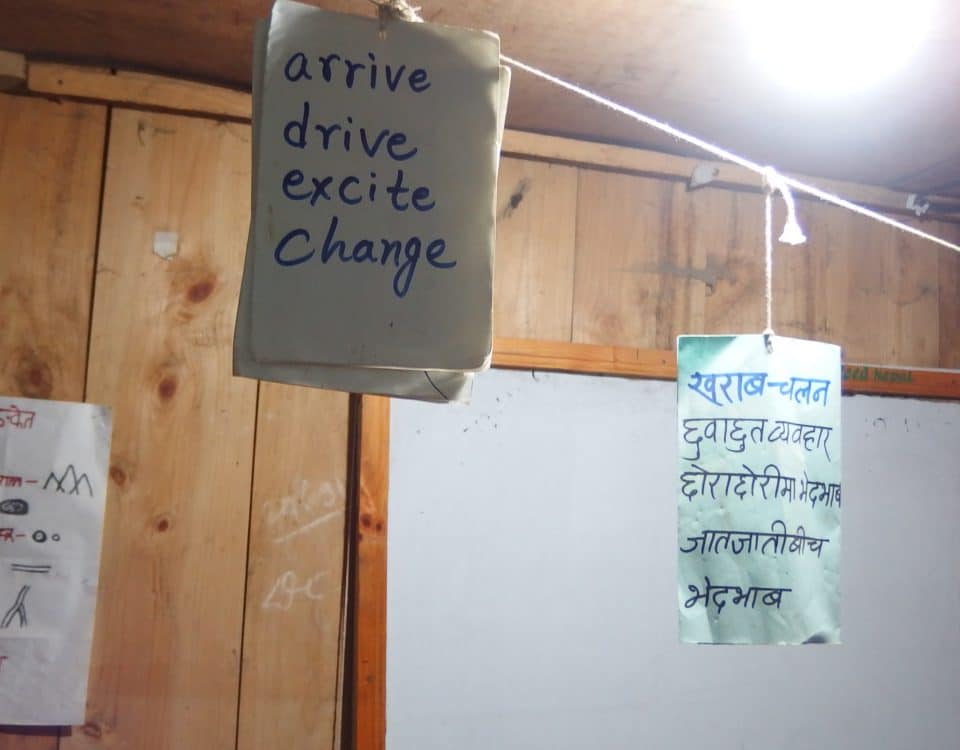 arrive
drive
excite
Change
खराब-चलन
छुवाछुत व्यवहार
छोराछोरीमा भेदभाब
जातजातीबीच
भेदभाब